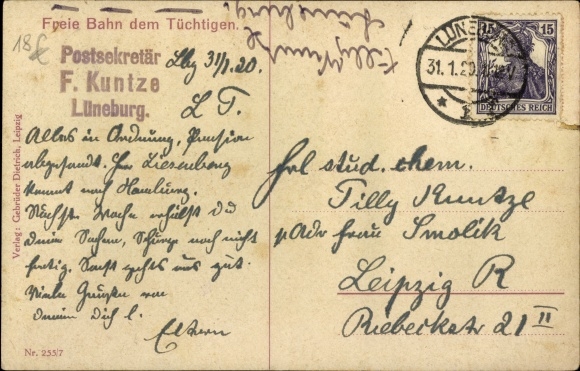 Freie Bahn dem Tüchtigen.
Tilly Kuntze
Lüneburg
18
Postsekretär
F. Kuntze
Lüneburg.
Lbg 31/1.20.
L. T.
Alles in Ordnung, Pension
abgesandt. Herr Liesenberg
kommt nach Hamburg.
Nächste Woche erhältst Du
Deine Sachen, Schürze noch nicht
fertig. Sonst gehts uns gut.
Viele Grüße von
Deinen Dich l.
Eltern
LÜNEBURG
31.1.20.
* 1
15
DEUTSCHES REICH
Frl stud. chem.
Tilly Kuntze
p Adr Frau Smolik
Leipzig R
Riebeckstr 21 II
Verlag: Gebrüder Dietrich, Leipzig
Nr. 253/7